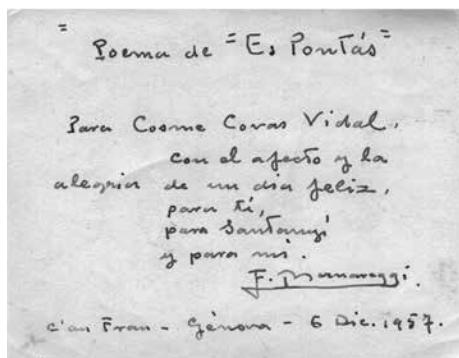 "Poema de "Es Pontás"
Para Cosme Covas Vidal,
con el afecto y la
alegria de un dia feliz,
para ti,
para Santanyí
y para mi.
F. Bernareggi.
C'an Fran - Génova - 6 Dic. 1957.